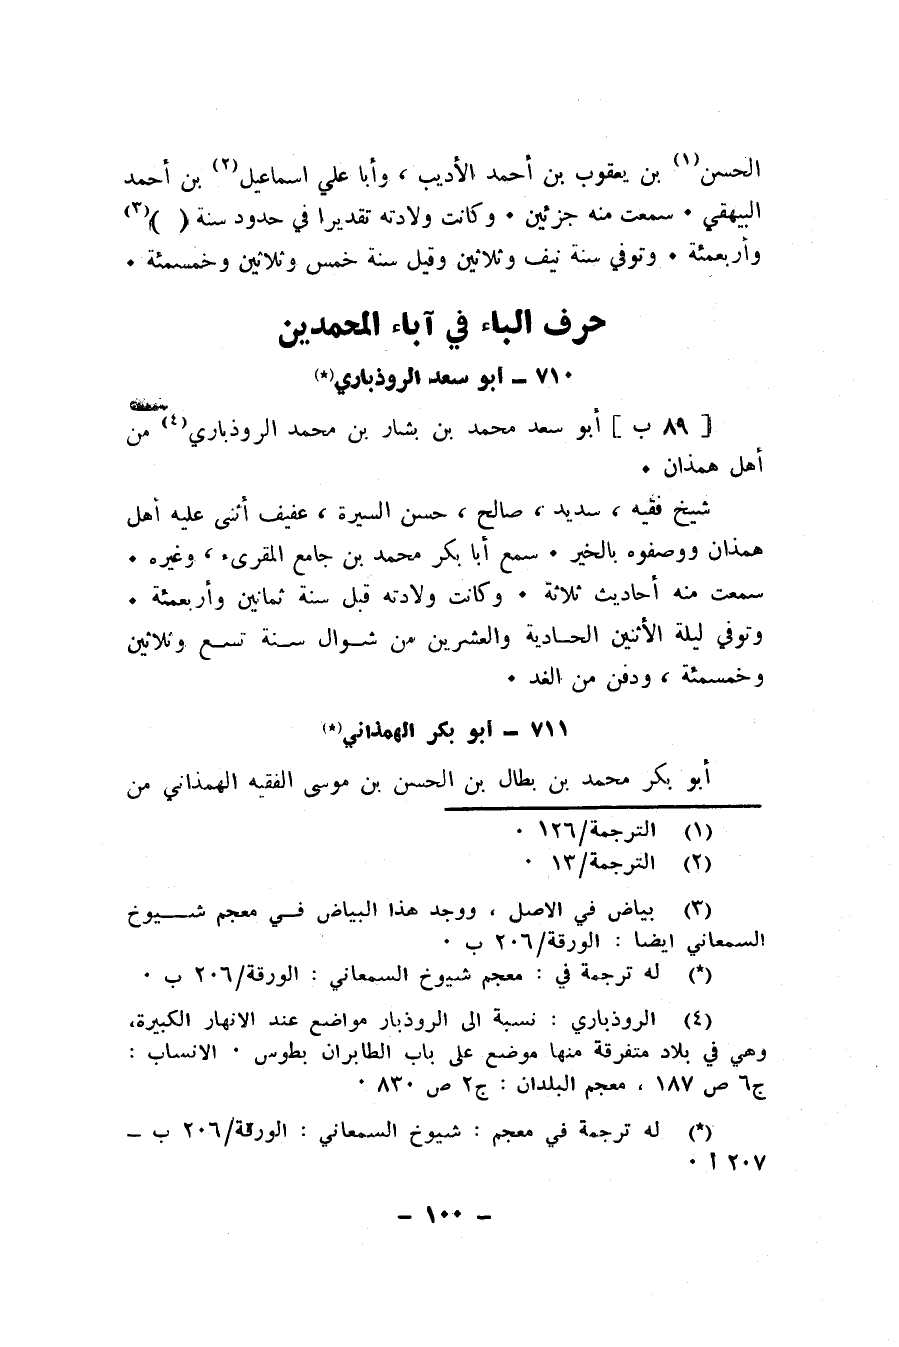 الحسن(١) بن يعقوب بن أحمد الأديب ، وأبا علي اسماعيل(٢) بن أحمد
البيهقي . سمعت منه جزئين . وكانت ولادته تقديرا في حدود سنة (   )(٣)
وأربعمئة . وتوفي سنة نيف وثلاثين وقيل سنة خمس وثلاثين وخمسمئة .
حرف الباء في آباء المحمدين
٧١٠ – أبو سعد الروذباري(*)
[ ٨٩ ب ] أبو سعد محمد بن بشار بن محمد الروذباري(٤) من
أهل همذان .
شيخ فقيه ، سديد ، صالح ، حسن السيرة ، عفيف أثنى عليه أهل
همذان ووصفوه بالخير . سمع أبا بكر محمد بن جامع المقرىء ، وغيره .
سمعت منه أحاديث ثلاثة . وكانت ولادته قبل سنة ثمانين وأربعمئة .
وتوفي ليلة الأثنين الحادية والعشرين من شوال سنة تسع وثلاثين
وخمسمئة ، ودفن من الغد .
٧١١ – أبو بكر الهمذاني(*)
أبو بكر محمد بن بطال بن الحسن بن موسى الفقيه الهمذاني من
(١) الترجمة/١٢٦ .
(٢) الترجمة/١٣ .
(٣) بياض في الاصل ، ووجد هذا البياض في معجم شيوخ
السمعاني ايضا : الورقة/٢٠٦ ب .
(*) له ترجمة في : معجم شيوخ السمعاني : الورقة/٢٠٦ ب .
(٤) الروذباري : نسبة الى الروذبار مواضع عند الانهار الكبيرة،
وهي في بلاد متفرقة منها موضع على باب الطابران بطوس . الانساب :
ج٦ ص ١٨٧ ، معجم البلدان : ج٢ ص ٨٣٠ .
(*) له ترجمة في معجم : شيوخ السمعاني : الورقة/٢٠٦ ب –
٢٠٧ أ .
– ١٠٠ –